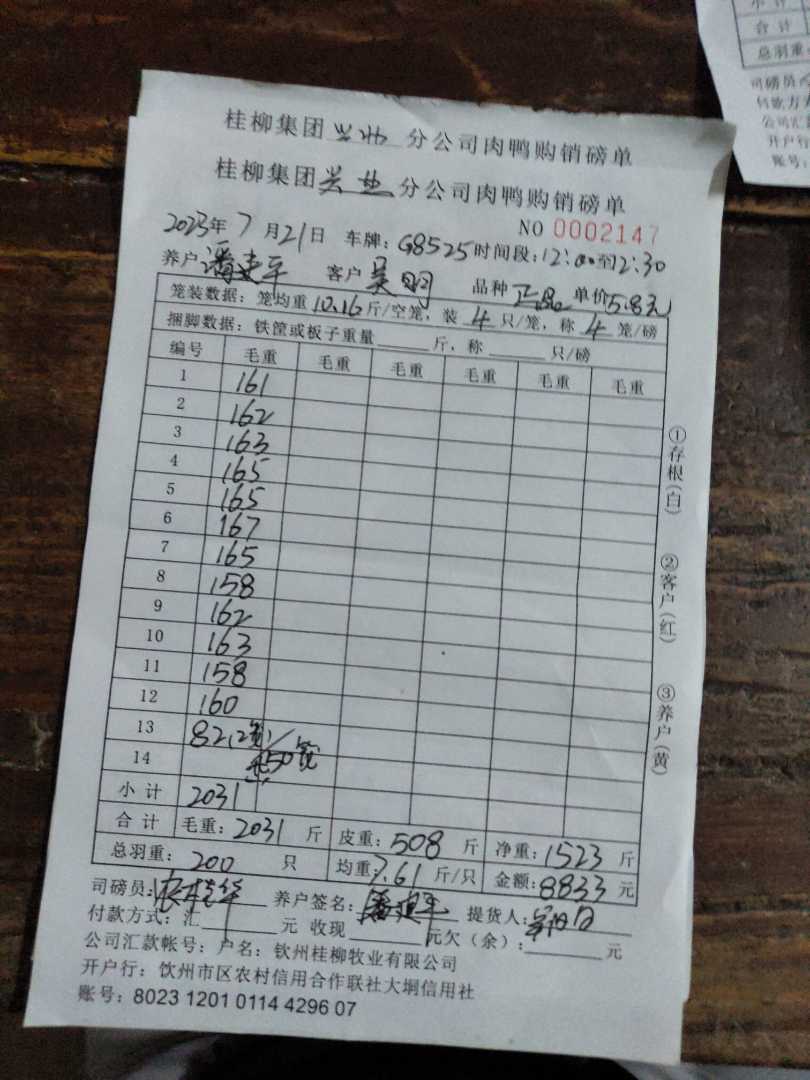 桂柳集团兴业分公司肉鸭购销磅单
桂柳集团兴业分公司肉鸭购销磅单
NO 0002147
2023年7月21日 车牌:G8525 时间段:12:00至12:30
养户 潘建平 客户 吴明 品种 正品 单价5.8元
笼装数据:笼均重10.16斤/空笼,装4只/笼,称4笼/磅
捆脚数据:铁筐或板子重量 斤,称 只/磅
编号 毛重 毛重 毛重 毛重 毛重 毛重
1 161
2 162
3 163
4 165
5 165
6 167
7 165
8 158
9 162
10 163
11 158
12 160
13 82(2笼)/
14 50笼
小计 2031
合计 毛重:2031斤 皮重:508斤 净重:1523斤
总羽重:200只 均重:7.61斤/只 金额:8833元
司磅员: 养户签名:潘建平 提货人:
付款方式:汇 元 收现 元欠(余): 元
公司汇款帐号:户名:钦州桂柳牧业有限公司
开户行:饮州市区农村信用合作联社大垌信用社
账号:8023 1201 0114 4296 07
①存根(白) ②客户(红) ③养户(黄)
小计
合计
总羽重:
司磅员
付款方
公司汇
开户行
账号: